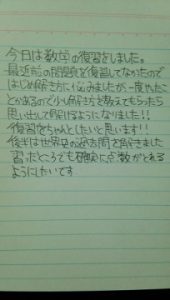 今日は数学の復習をしました。
最近前の問題集を復習してなかったので
はじめ解き方に悩みましたが一度やったこ
とがあるので少し解き方を教えてもらったら
思い出して解けるようになりました!!
復習をちゃんとしたいと思います!!
後半は世界史の過去問を解きました
習ったところでも確実に点数がとれる
ようにしたいです